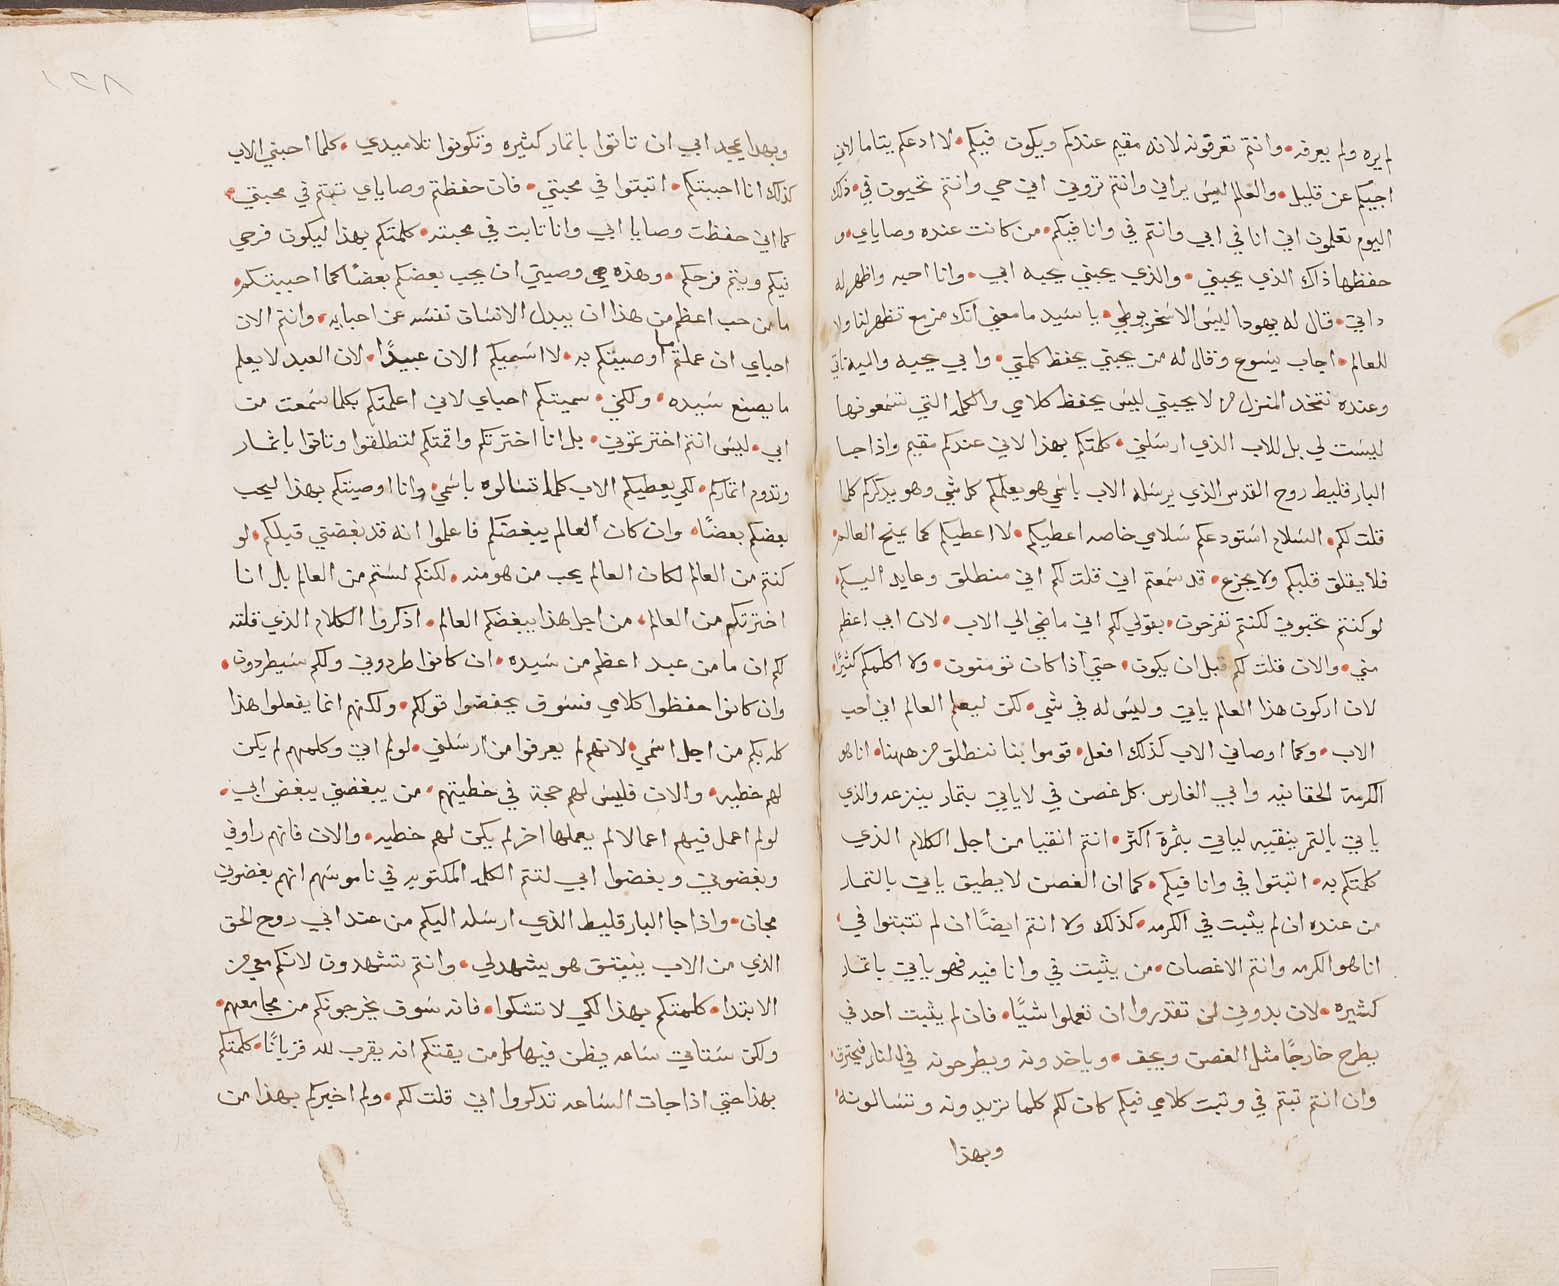 لم يره ولم يعرفه • وانتم تعرفونه لانه مقيم عندكم ويكون فيكم • لا ادعكم يتاما لاني
اجيكم عن قليل • والعالم ليس يراني وانتم تروني اني حي وانتم تحيون في • ذلك
اليوم تعلمون اني انا في ابي وانتم في وانا فيكم • من كانت عنده وصاياي • و
حفظها ذاك الذي يحبني • والذي يحبني يحبه ابي • وانا احبه واظهر له
داتي • قال له يهودا ليس الاسخريوطي • يا سيد ما معني انك مزمع تظهر لنا ولا
للعالم • اجاب يسوع وقال له من يحبني يحفظ كلمتي • وابي يحبه واليه ناتي
وعنده نتخد المنزل من لا يحبني ليس يحفظ كلامي والكلمه التي تسمعونها
ليست لي بل للاب الذي ارسلني • كلمتكم بهذا لاني عندكم مقيم واذا جا
البارقليط روح القدس الذي يرسله الاب باسمي هو يعلمكم كل شي وهو يذكركم كلما
قلت لكم • السلام استودعكم سلامي خاصه اعطيكم • لا اعطيكم كما يمنح العالم •
فلا يقلق قلبكم ولا يجزع • قد سمعتم اني قلت لكم اني منطلق وعايد اليكم •
لو كنتم تحبوني لكنتم تفرحون • بقولي لكم اني ماضي الي الاب • لان ابي اعظم
مني • والان قلت لكم قبل ان يكون • حتي اذا كان تومنون • ولا اكلمكم كثيرًا •
لان اركون هذا العالم ياتي وليس له في شي • لكن ليعلم العالم اني احب
الاب • وكما اوصاني الاب كذلك افعل • قوموا بنا ننطلق من ههنا • انا هو
الكرمة الحقانيه وابي الغارس • كل غصن في لا ياتي بتمار ينزعه والذي
ياتي بالتمر ينقيه لياتي بثمرة اكثر • انتم انقيا من اجل الكلام الذي
كلمتكم به • اتبتوا في وانا فيكم • كما ان الغصن لا يطيق ياتي بالتمار
من عنده ان لم يثبت في الكرمه • كذلك ولا انتم ايضًا ان لم تتبتوا في •
انا هو الكرمه وانتم الاغصان • من يثبت في وانا فيه فهو ياتي باتمار
كثيره • لان بدوني لن تقدروا ان تعملوا شيًا • فان لم يثبت احد في
يطرح خارجًا مثل الغصن ويجف • وياخدونه ويطرحونه في النار فيحترق •
وان انتم تبتم في وتبت كلامي فيكم كان لكم كلما تريدونه وتسالونه •
وبهذا
١٢٨
وبهذا يمجد ابي ان تاتوا باتمار كثيره وتكونوا تلاميدي • كلما احبني الاب
كذلك انا احببتكم • اتبتوا في محبتي • فان حفظتم وصاياي تبتم في محبتي •
كما اني حفظت وصايا ابي وانا تابت في محبته • كلمتكم بهذا ليكون فرحي
فيكم ويتم فرحكم • وهذه هي وصيتي ان يحب بعضكم بعضًا كما احببتكم •
ما من حب اعظم من هذا ان يبدل الانسان نفسه عن احبايه • وانتم الان
احباي ان عملتم ما اوصيتكم به • لا اسميكم الان عبيدًا • لان العبد لا يعلم
ما يصنع سيده • ولكني • سميتكم احباي لاني اعلمتكم بكلما سمعت من
ابي • ليس انتم اخترتموني • بل انا اخترتكم واقمتكم لتنطلقوا وتاتوا باتمار
وتدوم اتماركم • لكي يعطيكم الاب كلما تسالوه باسمي • وانا اوصيتكم بهذا ليحب
بعضكم بعضًا • وان كان العالم يبغضكم فاعلموا انه قد بغضني قبلكم • لو
كنتم من العالم لكان العالم يحب من هو منه • لكنكم لستم من العالم بل انا
اخترتكم من العالم • من اجل هذا يبغضكم العالم • اذكروا الكلام الذي قلته
لكم ان ما من عبد اعظم من سيده • ان كانوا طردوني ولكم سيطردون •
وان كانوا حفظوا كلامي فسوف يحفضوا قولكم • ولكنهم انما يفعلوا هذا
كله بكم من اجل اسمي • لانهم لم يعرفوا من ارسلني • لو لم اتي وكلمهم لم يكن
لهم خطيه • والان فليس لهم حجة في خطيتهم • من يبغضني يبغض ابي •
لو لم اعمل فيهم اعمالا لم يعملها اخر لم يكن لهم خطيه • والان فانهم راوني
وبغضوني وبغضوا ابي لتتم الكلمه المكتوبه في ناموسهم انهم بغضوني
مجان • واذا جا البارقليط الذي ارسله اليكم من عند ابي روح الحق
الذي من الاب ينبتق هو يشهد لي • وانتم تشهدون لانكم معي من
الابتدا • كلمتكم بهذا لكي لا تشكوا • فانه سوف يخرجونكم من مجامعهم •
ولكن ستاتي ساعه يظن فيها كل من يقتلكم انه يقرب لله قربانًا • كلمتكم
بهذا حتي اذا جات الساعه تدكروا اني قلت لكم • ولم اخبركم بهذا من